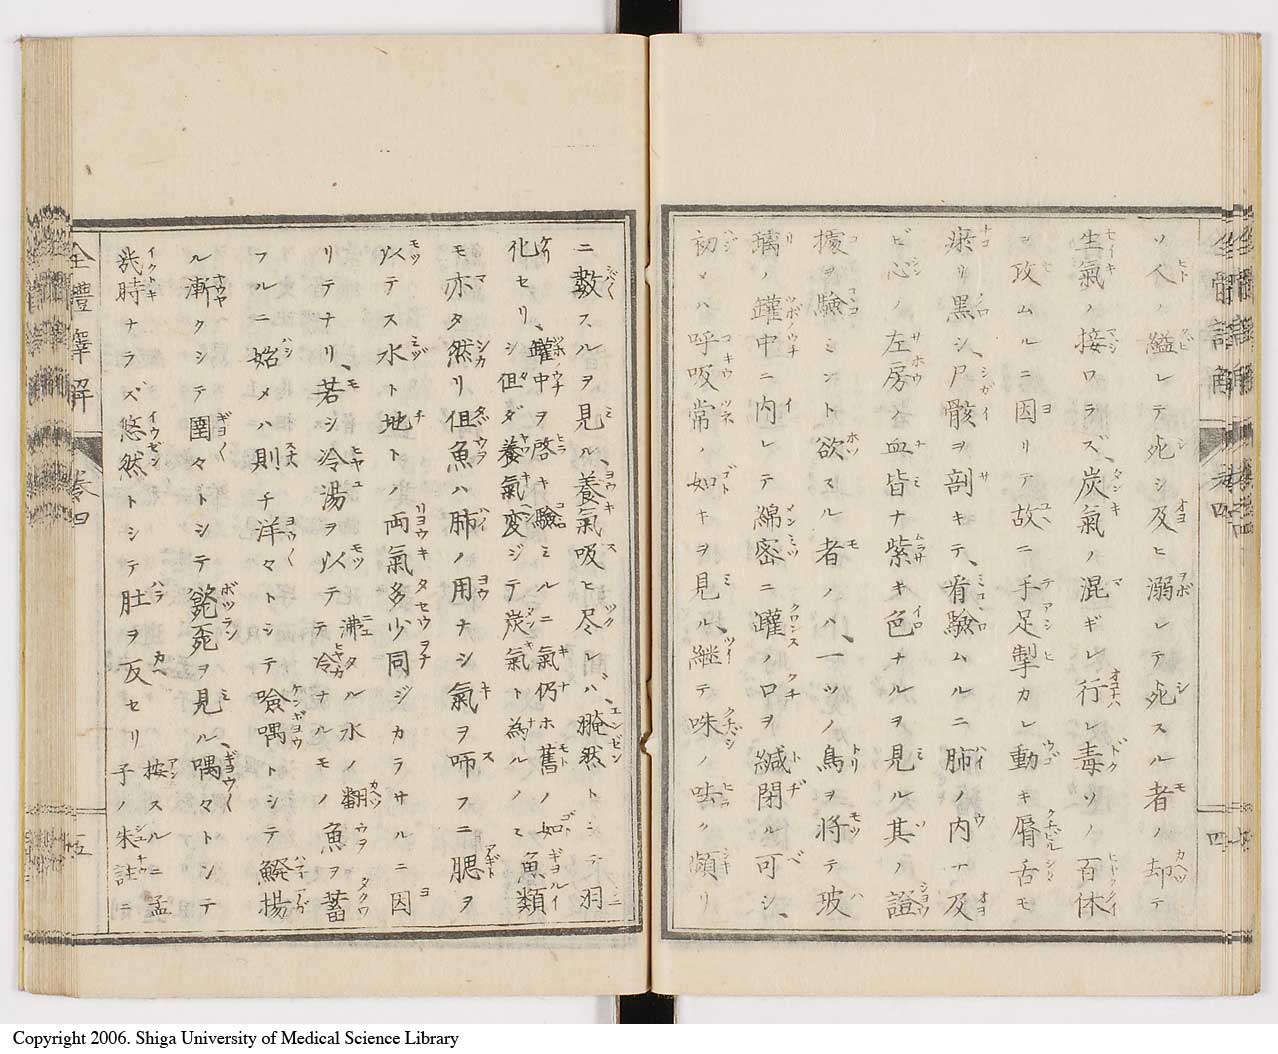 ソ人ノ縊レテ死シ及ヒ溺レテ死スル者ノ却テ
生氣ノ接ロラズ、炭氣ノ混ギレ行レ毒ソノ百体
ヲ攻ムルニ因リテ故ニ手足掣カレ動キ脣舌モ
瘀リ黒シ、尸骸ヲ剖キテ、肴驗ムルニ肺ノ内ナ及
ビ心ノ左房ノ血皆ナ紫キ色ナルヲ見ル其ノ證
據ヲ驗ミント欲スル者ノハ、一ツノ鳥ヲ将テ玻
璃ノ罐中ニ内レテ綿密ニ罐ノ口ヲ緘閉ル可シ、
初メハ呼吸常ノ如キヲ見ル、継テ咮ノ呿ク頻リ
ニ數フルヲ見ル、養氣吸ヒ尽レハ、腌然トシテ羽
化セリ、罐中ヲ啓キ驗ミルニ氣仍ホ舊ノ如シ但ダ養氣変ジテ炭氣ト為ルノミ魚類
モ亦タ然リ但魚ハ肺ノ用ナシ氣ヲ呩フニ腮ヲ
以テス水ト地トノ両氣多少同ジカラサルニ因
リテナリ、若シ冷湯ヲ以テ沸タル水ノ冷ナルモノ翻魚ヲ蓄
フルニ始メハ則チ洋々トシテ噞喁トシテ鰓揚
ル漸クシテ圉々トシテ斃死ヲ見ル、喁々トシテ
幾時ナラズ悠然トシテ肚ヲ反セリ按スルニ孟子ノ朱註ニ
全體譯解
卷四
五
四
Copyright 2006. Shiga University of Medical Science Library